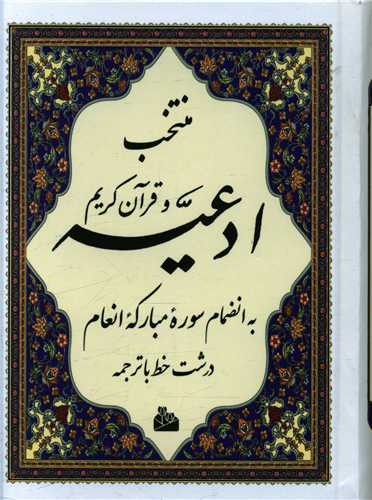 منتخب
ادعیّه و قرآن کریم
به انضمام سورهٔ مبارکهٔ انعام
درشت خط با ترجمه